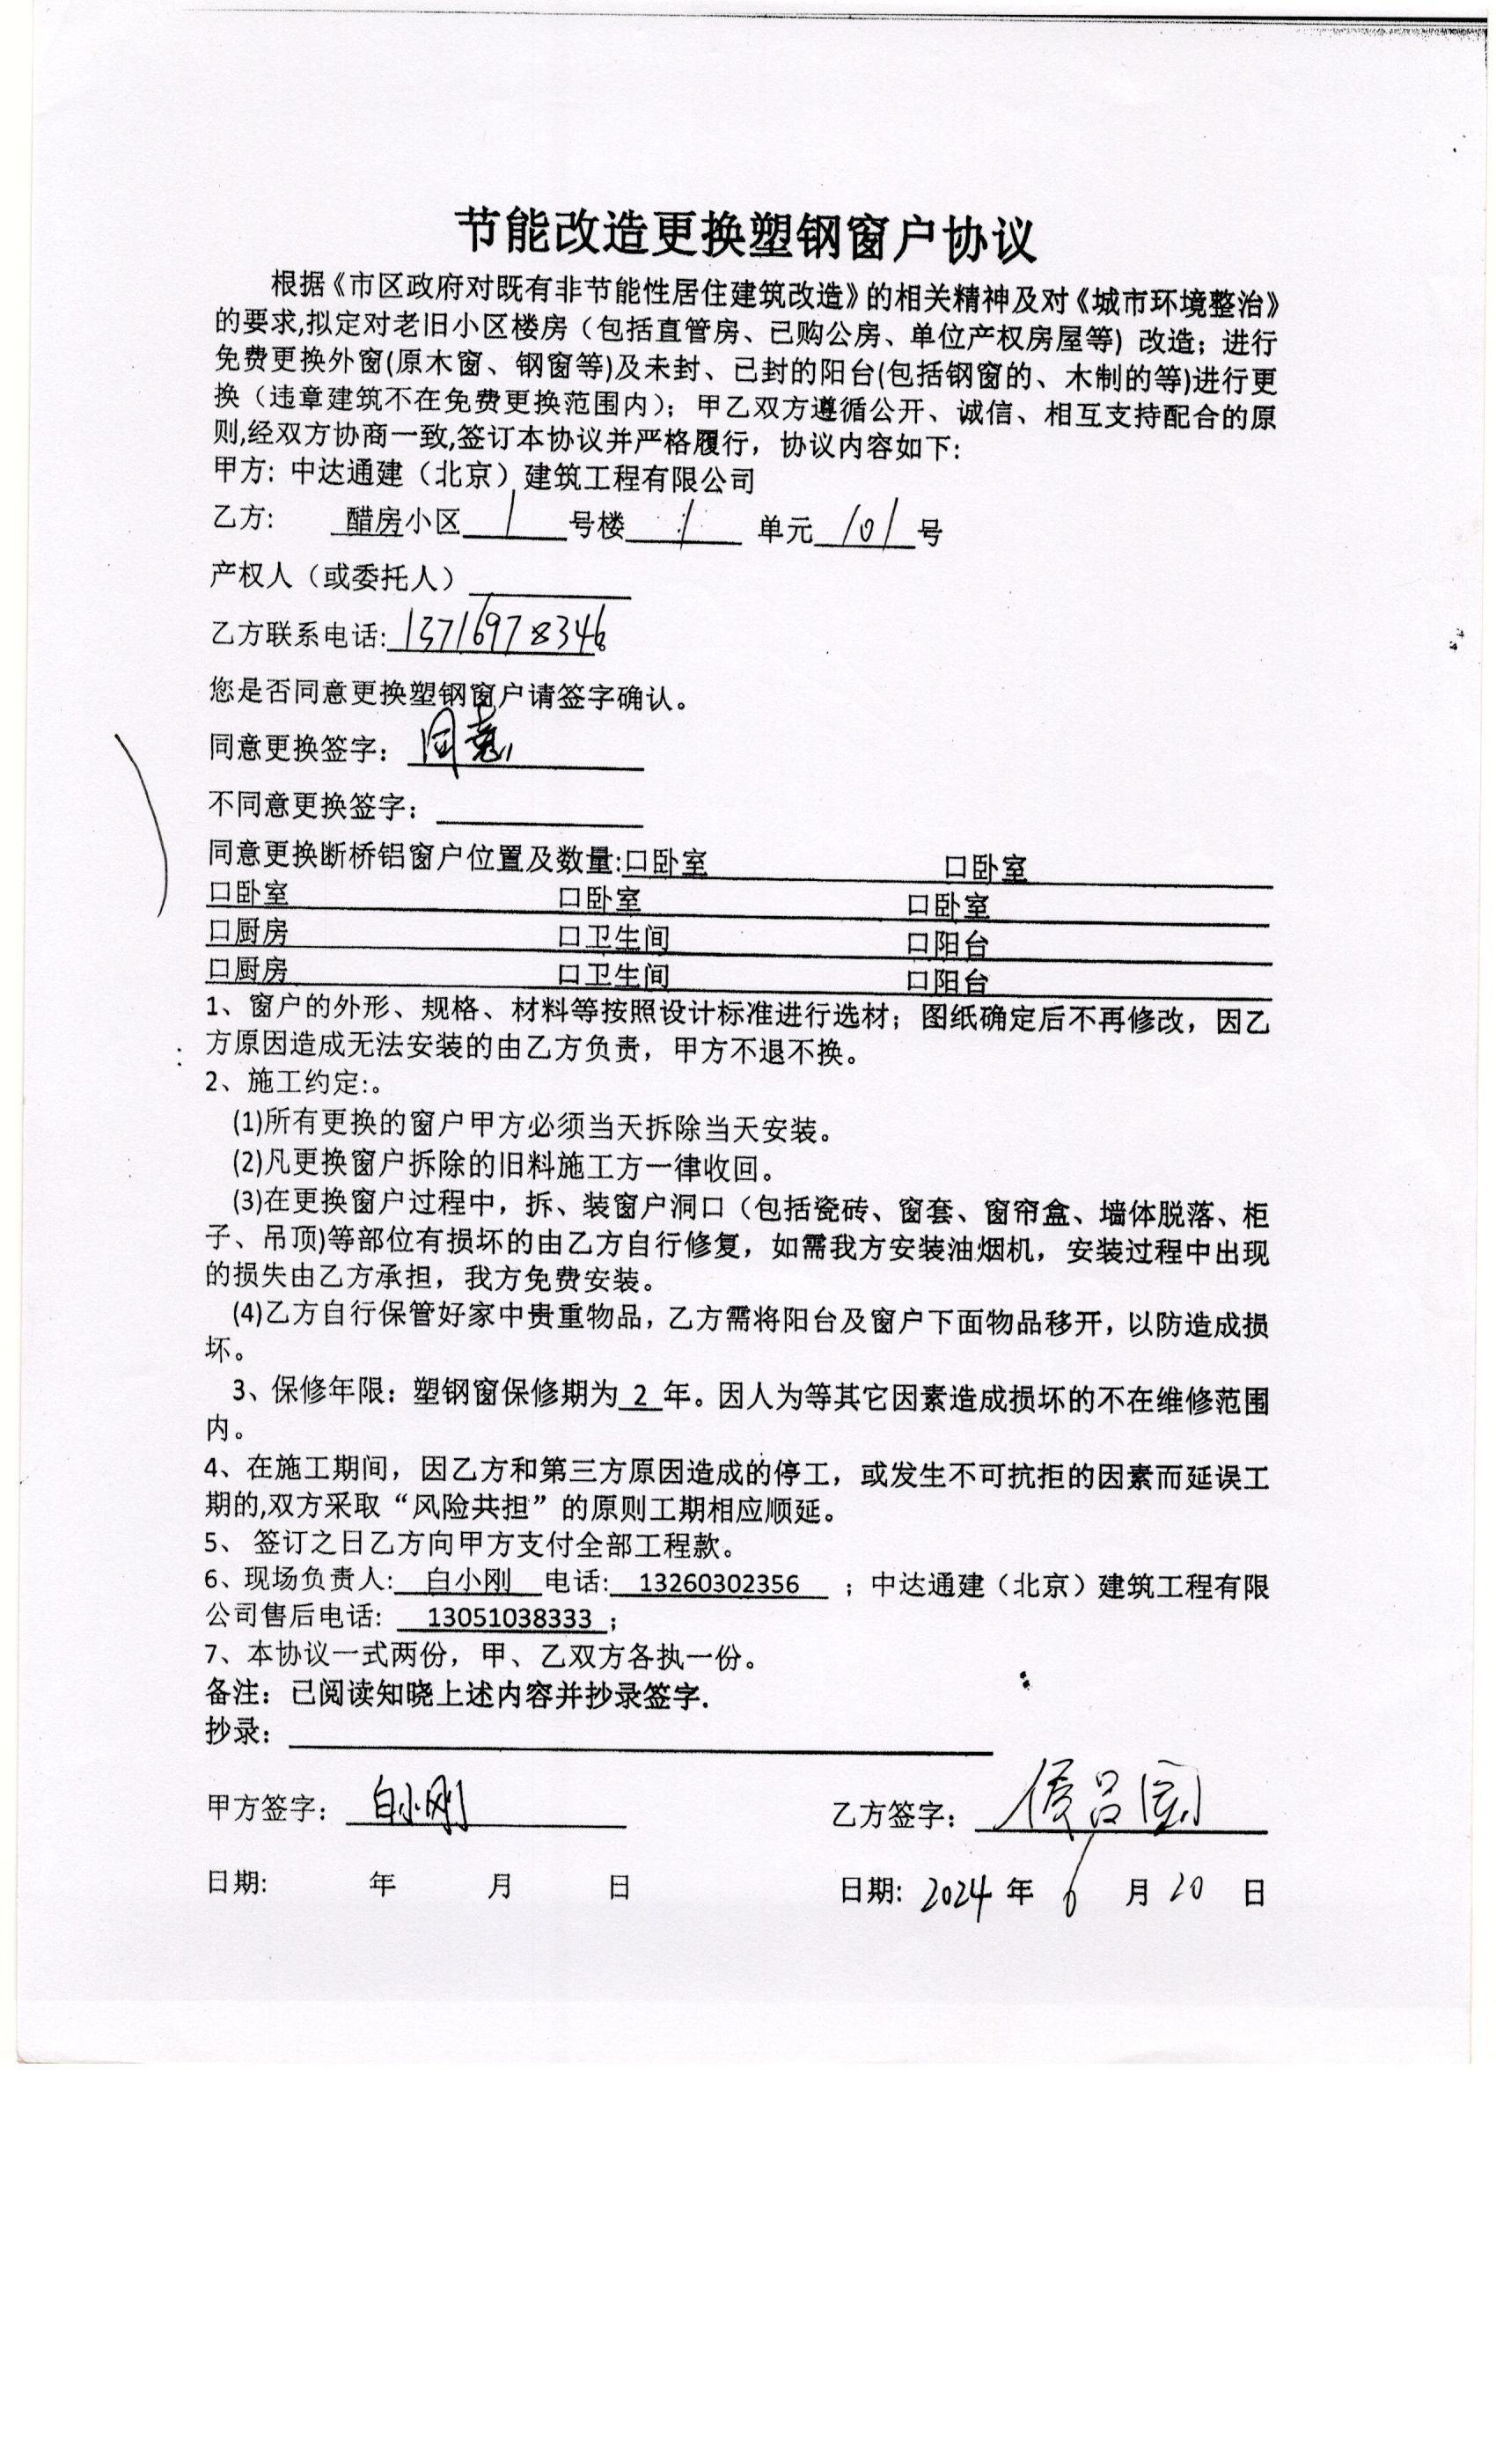 节能改造更换塑钢窗户协议
根据《市区政府对既有非节能性居住建筑改造》的相关精神及对《城市环境整治》
的要求,拟定对老旧小区楼房（包括直管房、已购公房、单位产权房屋等）改造；进行
免费更换外窗(原木窗、钢窗等)及未封、已封的阳台(包括钢窗的、木制的等)进行更
换（违章建筑不在免费更换范围内）；甲乙双方遵循公开、诚信、相互支持配合的原
则,经双方协商一致,签订本协议并严格履行，协议内容如下:
甲方: 中达通建（北京）建筑工程有限公司
乙方: 醋房小区 1 号楼 1 单元 101 号
产权人（或委托人）
乙方联系电话: 13716978346
您是否同意更换塑钢窗户请签字确认。
同意更换签字: 同意
不同意更换签字:
同意更换断桥铝窗户位置及数量:口卧室 口卧室
口卧室 口卧室 口卧室
口厨房 口卫生间 口阳台
口厨房 口卫生间 口阳台
1、窗户的外形、规格、材料等按照设计标准进行选材；图纸确定后不再修改，因乙
方原因造成无法安装的由乙方负责，甲方不退不换。
2、施工约定:。
(1)所有更换的窗户甲方必须当天拆除当天安装。
(2)凡更换窗户拆除的旧料施工方一律收回。
(3)在更换窗户过程中，拆、装窗户洞口（包括瓷砖、窗套、窗帘盒、墙体脱落、柜
子、吊顶)等部位有损坏的由乙方自行修复，如需我方安装油烟机，安装过程中出现
的损失由乙方承担，我方免费安装。
(4)乙方自行保管好家中贵重物品，乙方需将阳台及窗户下面物品移开，以防造成损
坏。
3、保修年限：塑钢窗保修期为 2 年。因人为等其它因素造成损坏的不在维修范围
内。
4、在施工期间，因乙方和第三方原因造成的停工，或发生不可抗拒的因素而延误工
期的,双方采取“风险共担”的原则工期相应顺延。
5、 签订之日乙方向甲方支付全部工程款。
6、现场负责人: 白小刚 电话: 13260302356 ；中达通建（北京）建筑工程有限
公司售后电话: 13051038333 ；
7、本协议一式两份，甲、乙双方各执一份。
备注：已阅读知晓上述内容并抄录签字.
抄录:
甲方签字: 白小刚 乙方签字: 侯吕园
日期: 年 月 日 日期: 2024 年 6 月 20 日